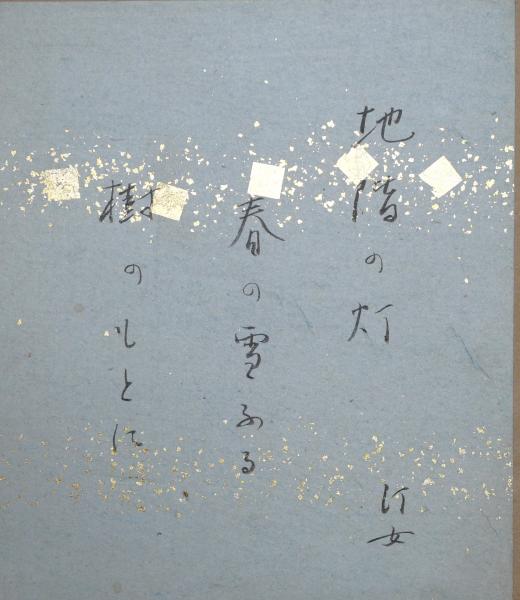 地階の灯
春の雪ふる
樹のもとに
汀女